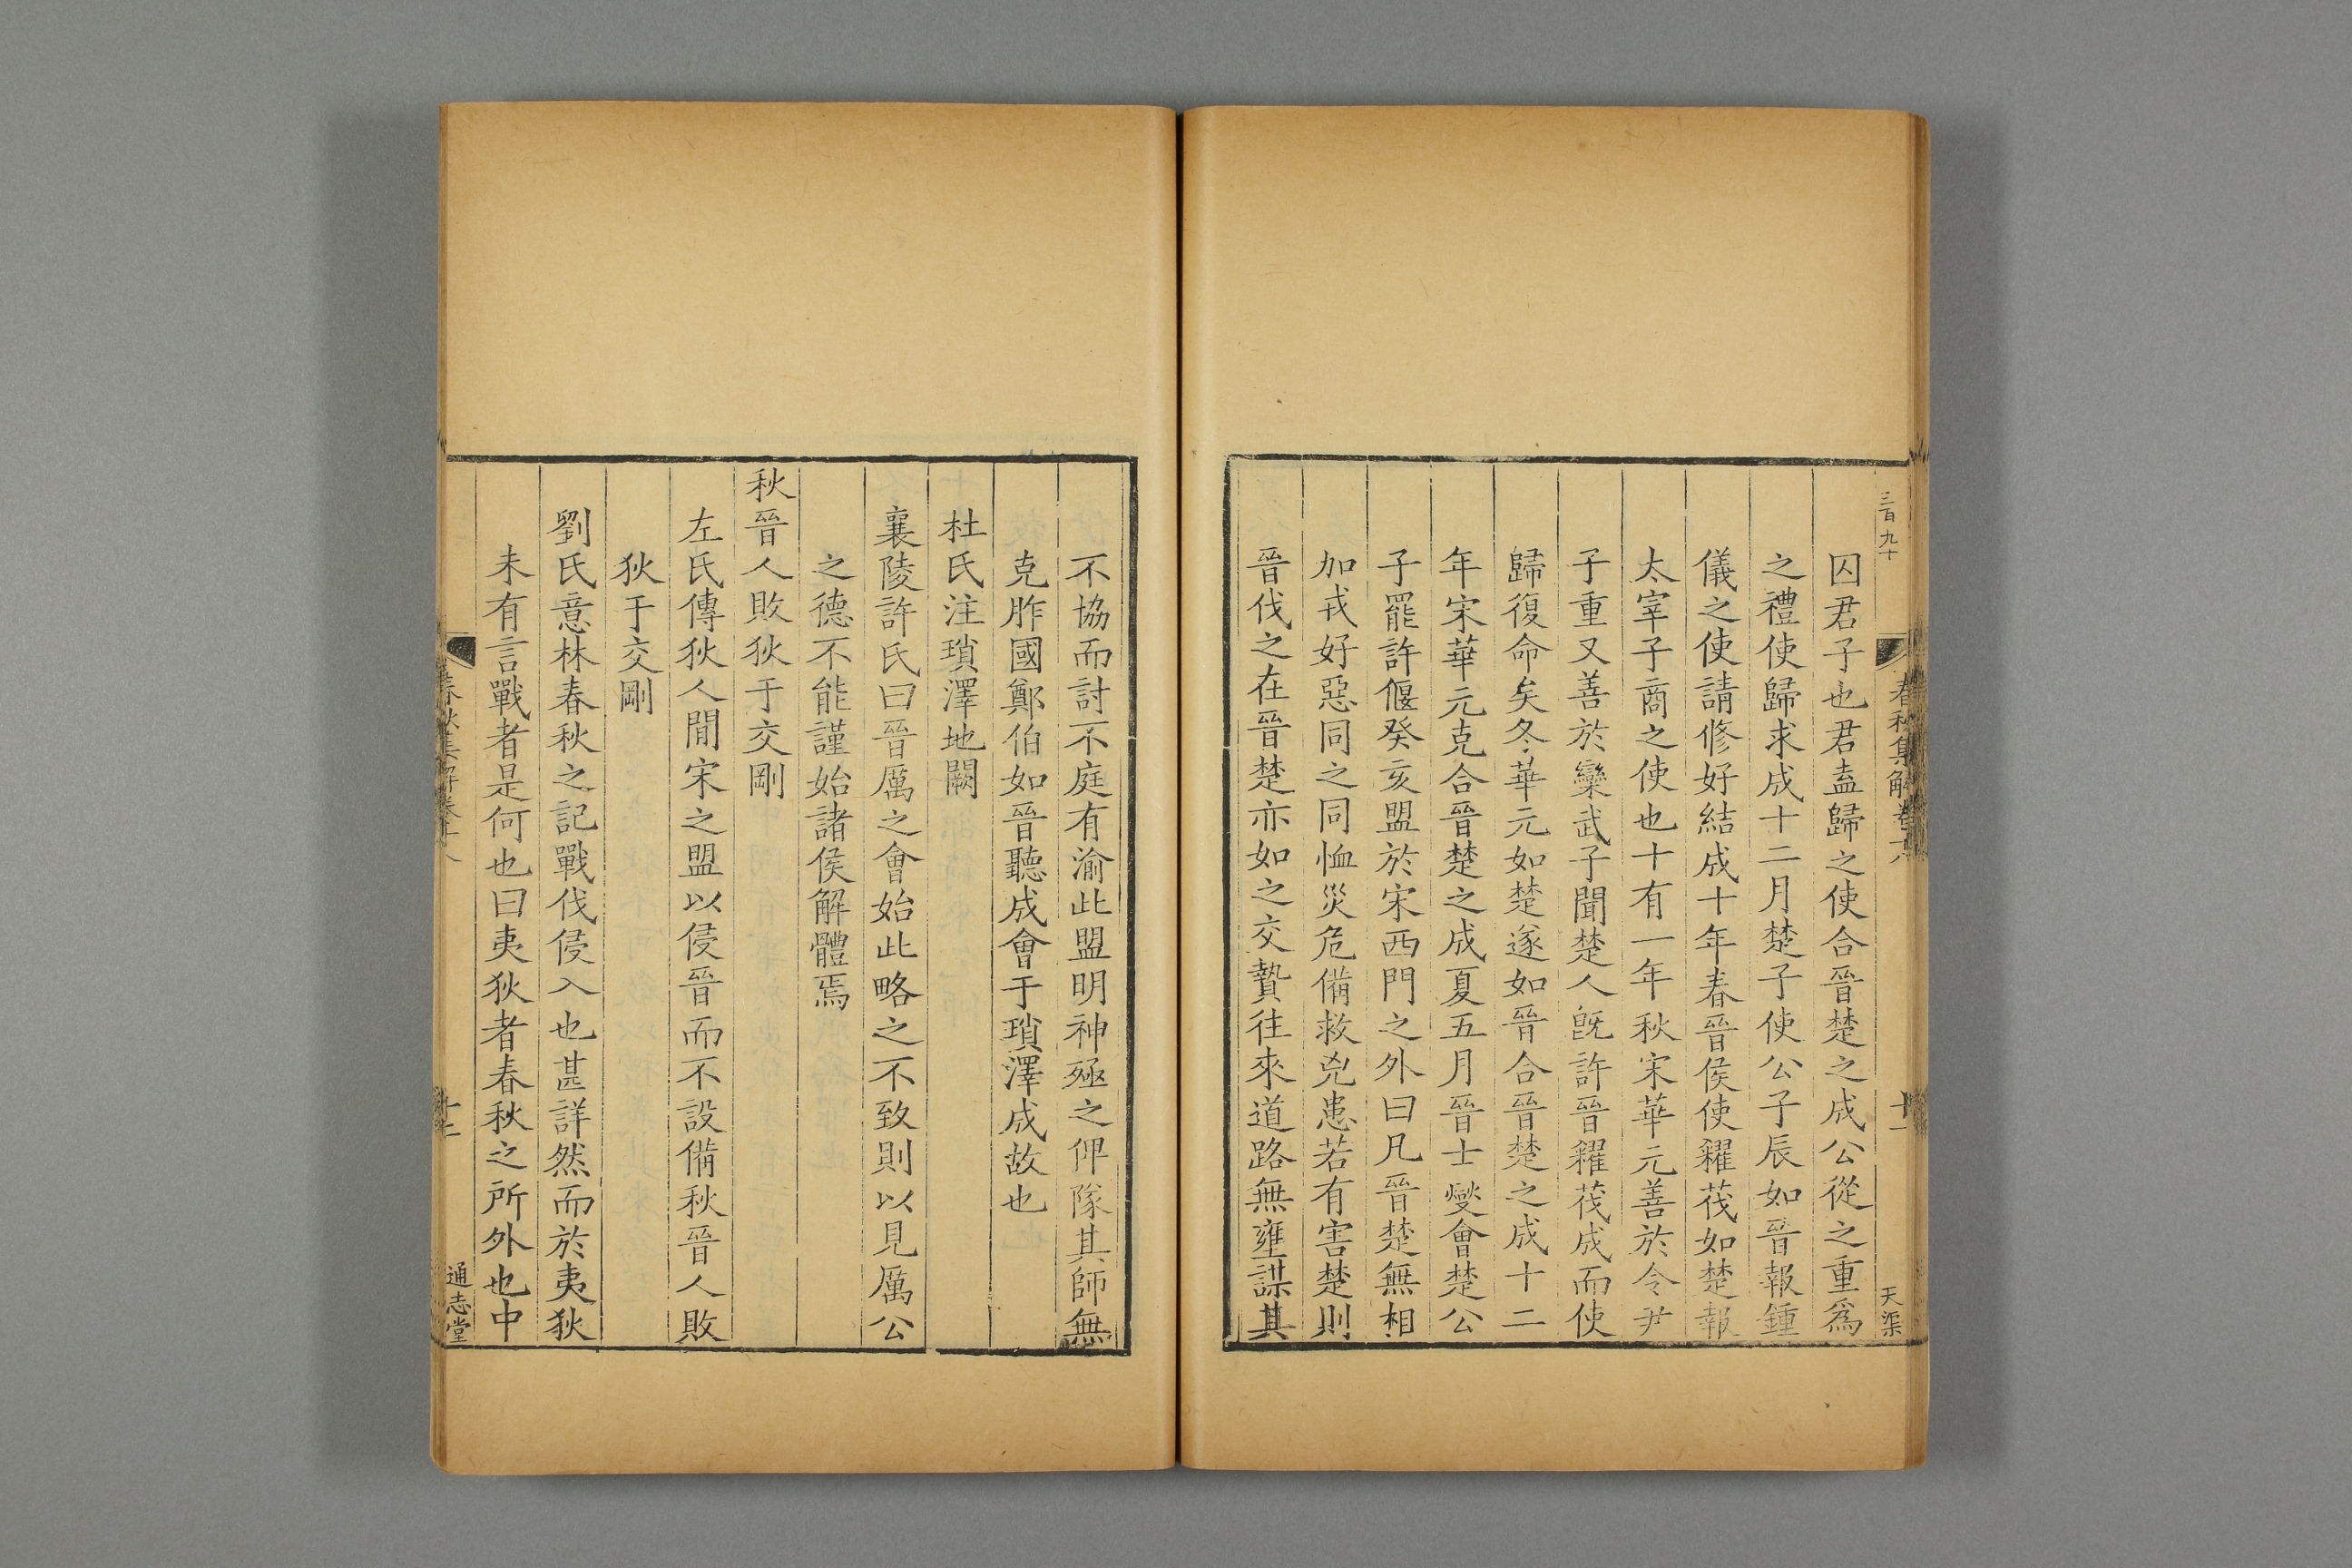 三百九十
春秋集解卷十八
十一
天渠
囚君子也君盍歸之使合晉楚之成公從之重爲
之禮使歸求成十二月楚子使公子辰如晉報鍾
儀之使請修好結成十年春晉侯使糴茷如楚報
太宰子商之使也十有一年秋宋華元善於令尹
子重又善於欒武子聞楚人旣許晉糴茷成而使
歸復命矣冬華元如楚遂如晉合晉楚之成十二
年宋華元克合晉楚之成夏五月晉士燮會楚公
子罷許偃癸亥盟於宋西門之外曰凡晉楚無相
加戎好惡同之同恤災危備救兇患若有害楚則
晉伐之在晉楚亦如之交贄往來道路無壅謀其
不協而討不庭有渝此盟明神殛之俾隊其師無
克胙國鄭伯如晉聽成會于瑣澤成故也
杜氏注瑣澤地闕
襄陵許氏曰晉厲之會始此略之不致則以見厲公
之德不能謹始諸侯解體焉
秋晉人敗狄于交剛
左氏傳狄人間宋之盟以侵晉而不設備秋晉人敗
狄于交剛
劉氏意林春秋之記戰伐侵入也甚詳然而於夷狄
未有言戰者是何也曰夷狄者春秋之所外也中
春秋集解卷十八
十一
通志堂